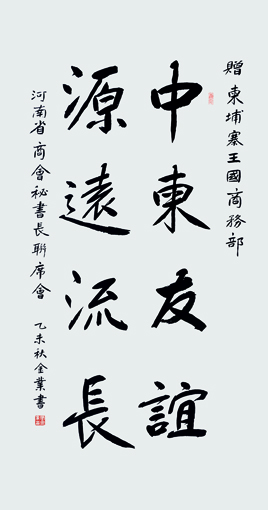 贈柬埔寨王國商務部
中柬友誼
源遠流長
河南省商會祕書長聯席會
乙未秋金業書